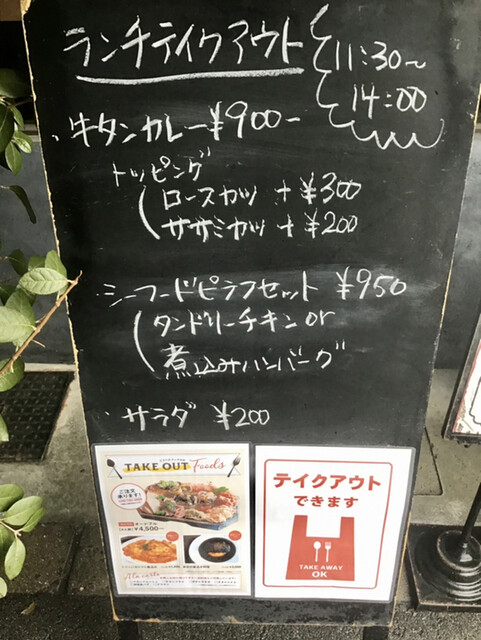 ランチテイクアウト
11:30~
14:00
・牛タンカレー ¥900-
トッピング
ロースカツ +¥300
ササミカツ +¥200
・シーフードピラフセット ¥950
タンドリーチキン or
煮込みハンバーグ
・サラダ ¥200
TAKE OUT Foods
ご注文
承ります!
オードブル
¥4,500
A la carte
テイクアウト
できます
TAKE AWAY
OK